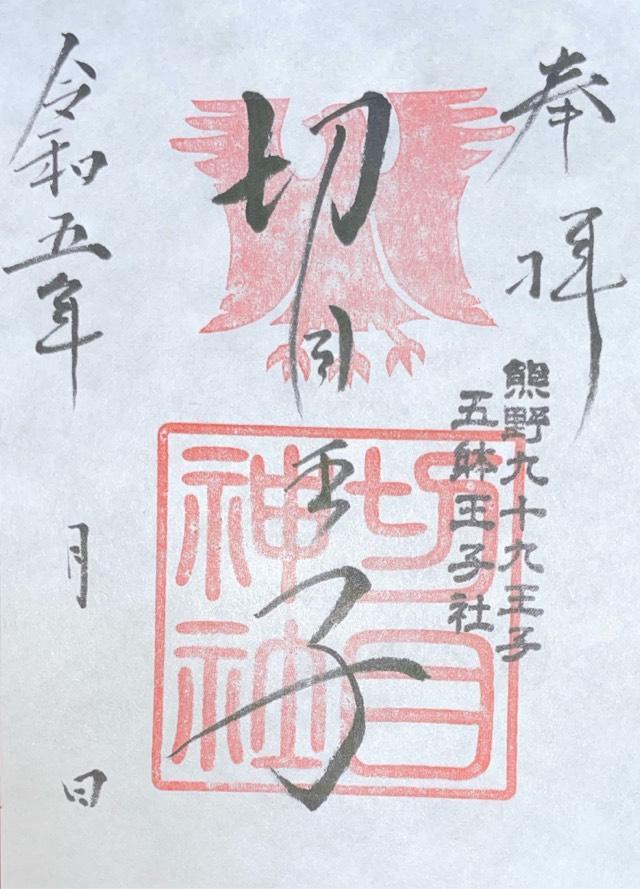 奉拝
熊野九十九王子
五躰王子社
切目王子
切目神社
令和五年 月 日